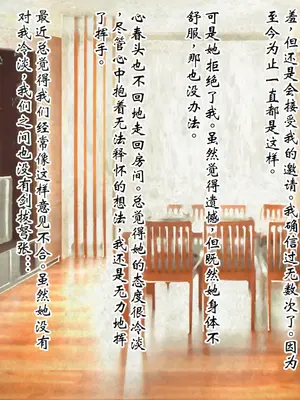 羞，但还是会接受我的邀请。我确信过无数次了。因为
至今为止一直都是这样。
可是她拒绝了我。虽然觉得遗憾，但既然她身体不
舒服，那也没办法。
心春头也不回地走回房间。总觉得她的态度很冷淡
，尽管心中抱着无法释怀的想法，我还是无力地挥
了挥手。
最近总觉得我们经常像这样意见不合。虽然她没有
对我冷淡，我们之间也没有剑拔弩张…